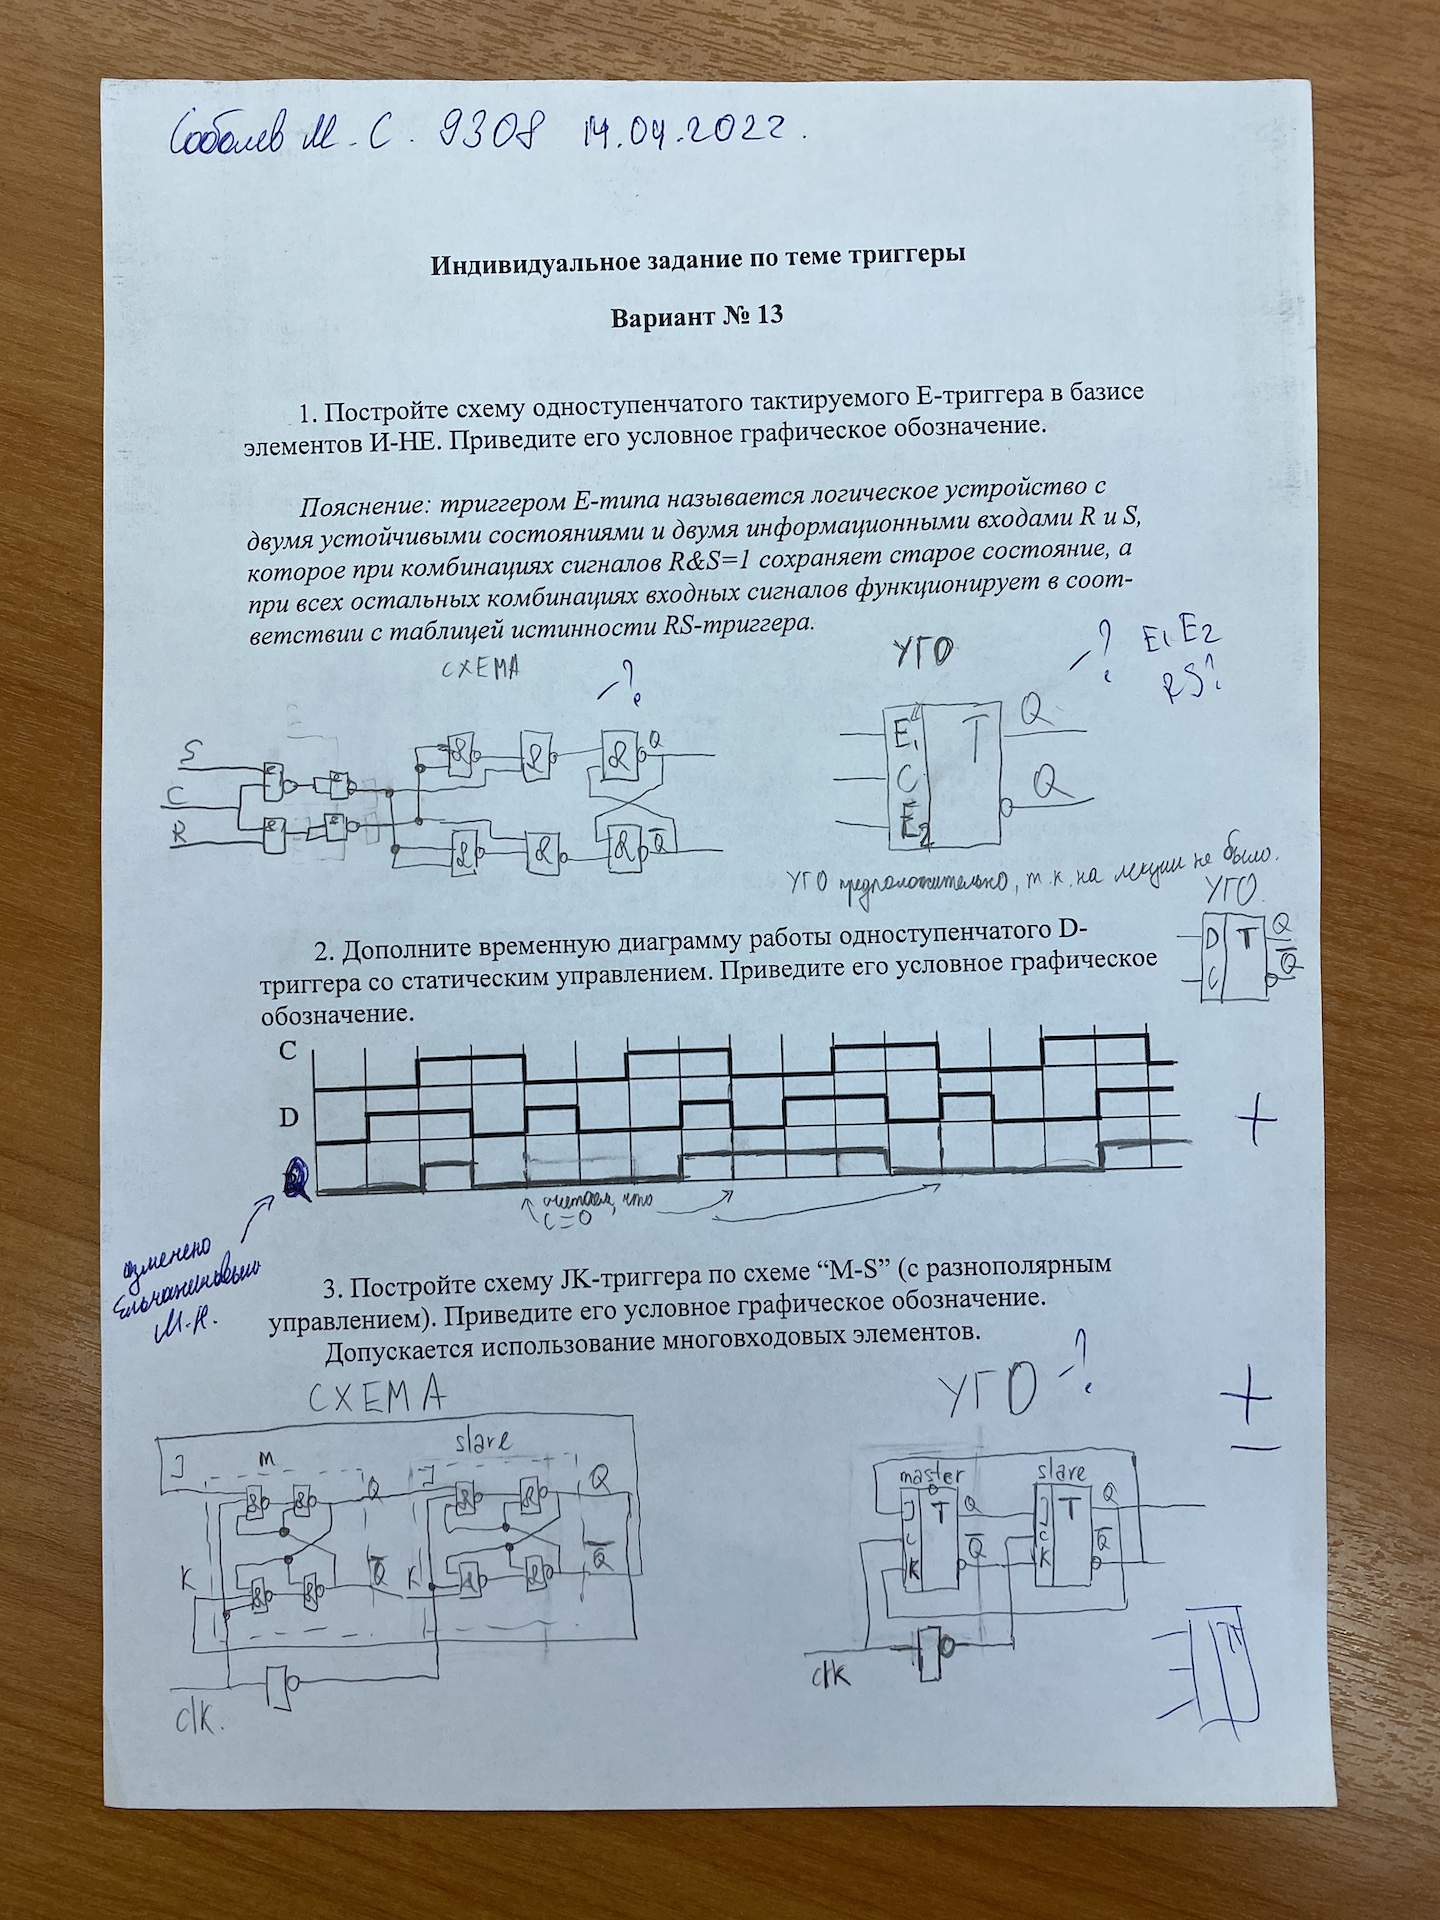 Соболев М. С. 9308 14.04.2022.
Индивидуальное задание по теме триггеры
Вариант № 13
1. Постройте схему одноступенчатого тактируемого E-триггера в базисе
элементов И-НЕ. Приведите его условное графическое обозначение.
Пояснение: триггером E-типа называется логическое устройство с
двумя устойчивыми состояниями и двумя информационными входами R и S,
которое при комбинациях сигналов R&S=1 сохраняет старое состояние, а
при всех остальных комбинациях входных сигналов функционирует в соот-
ветствии с таблицей истинности RS-триггера.
СХЕМА
?
УГО
?
E1 E2
RS?
S
C
R
& & & & & & & & & &
Q
Q̅
E1
C
E2
T
Q
Q
УГО предположительно, т.к. на лекции не было.
УГО
D
C
T
Q
Q̅
2. Дополните временную диаграмму работы одноступенчатого D-
триггера со статическим управлением. Приведите его условное графическое
обозначение.
C
D
+
считаем, что
C=0
изменено
М.Н.
3. Постройте схему JK-триггера по схеме “M-S” (с разнополярным
управлением). Приведите его условное графическое обозначение.
Допускается использование многовходовых элементов.
СХЕМА
УГО
?
+
J
M
slave
J
& & Q & & Q
K
& & Q̅ K & & Q̅
clk.
master
slave
J T Q J T Q
C Q̅ C Q̅
K K
clk
T